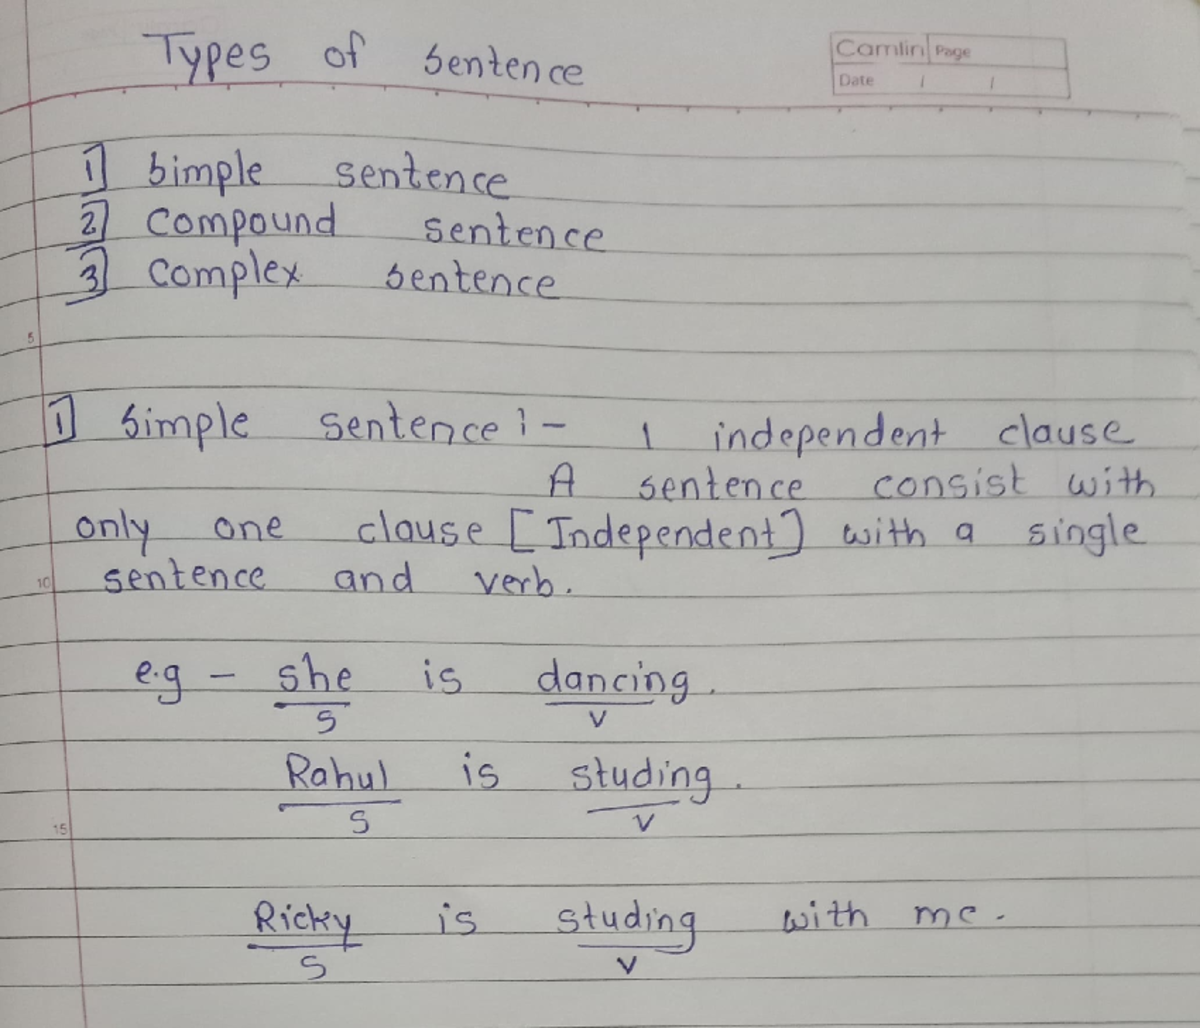 Types of sentence
Camlin Page
Date / /
1] Simple sentence
2] compound sentence
3] complex sentence
5
1] Simple sentence :- 1 independent clause
A sentence consist with
only one clause [Independent] with a single
10 sentence and verb.
e.g - she is dancing.
S V
Rahul is studing.
S V
15
Ricky is studing with me.
S V